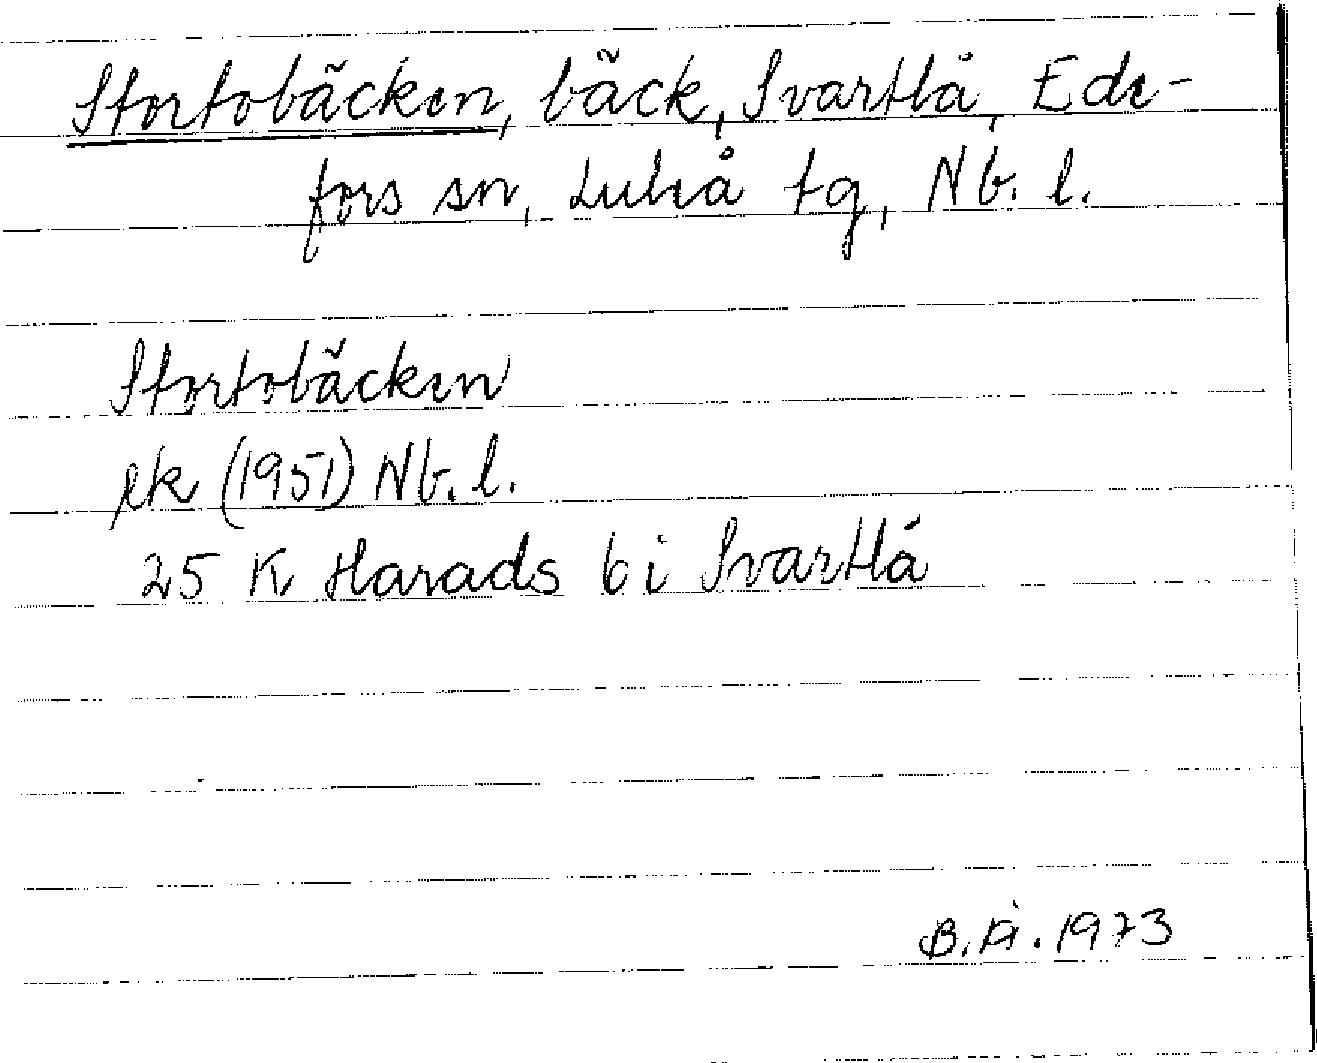 Stortobäcken, bäck, Svartlå, Ede-
fors sn, Luleå tg, Nb. l.
Stortobäcken
ek (1951) Nb. l.
25 K Harads 6 i Svartlå
1973